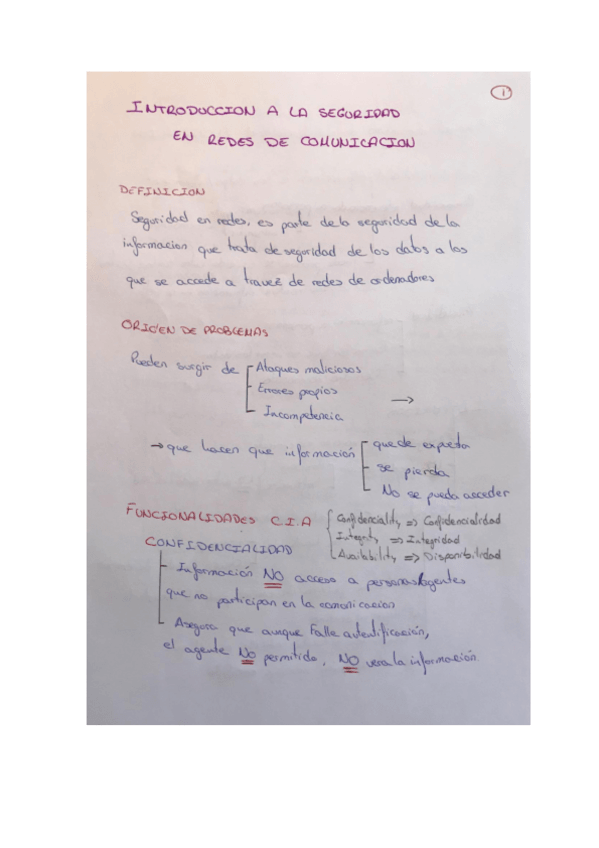 1
INTRODUCCION A LA SEGURIDAD
EN REDES DE COMUNICACION
DEFINICION
Seguridad en redes, es parte de la seguridad de la
informacion que trata de seguridad de los datos a los
que se accede a travez de redes de ordenadores
ORIGEN DE PROBLEMAS
Pueden surgir de
Ataques maliciosos
Errores propios
Incompetencia
→
→ que hacen que información
quede expuesta
se pierda
No se pueda acceder
FUNCIONALIDADES C.I.A
Confidenciality => Confidencialidad
Integrity => Integridad
Availability => Disponibilidad
CONFIDENCIALIDAD
- Información NO acceso a personas/agentes
que no participan en la comunicacion
- Asegura que aunque Falle autentificación,
el agente No permitido, NO vera la información.